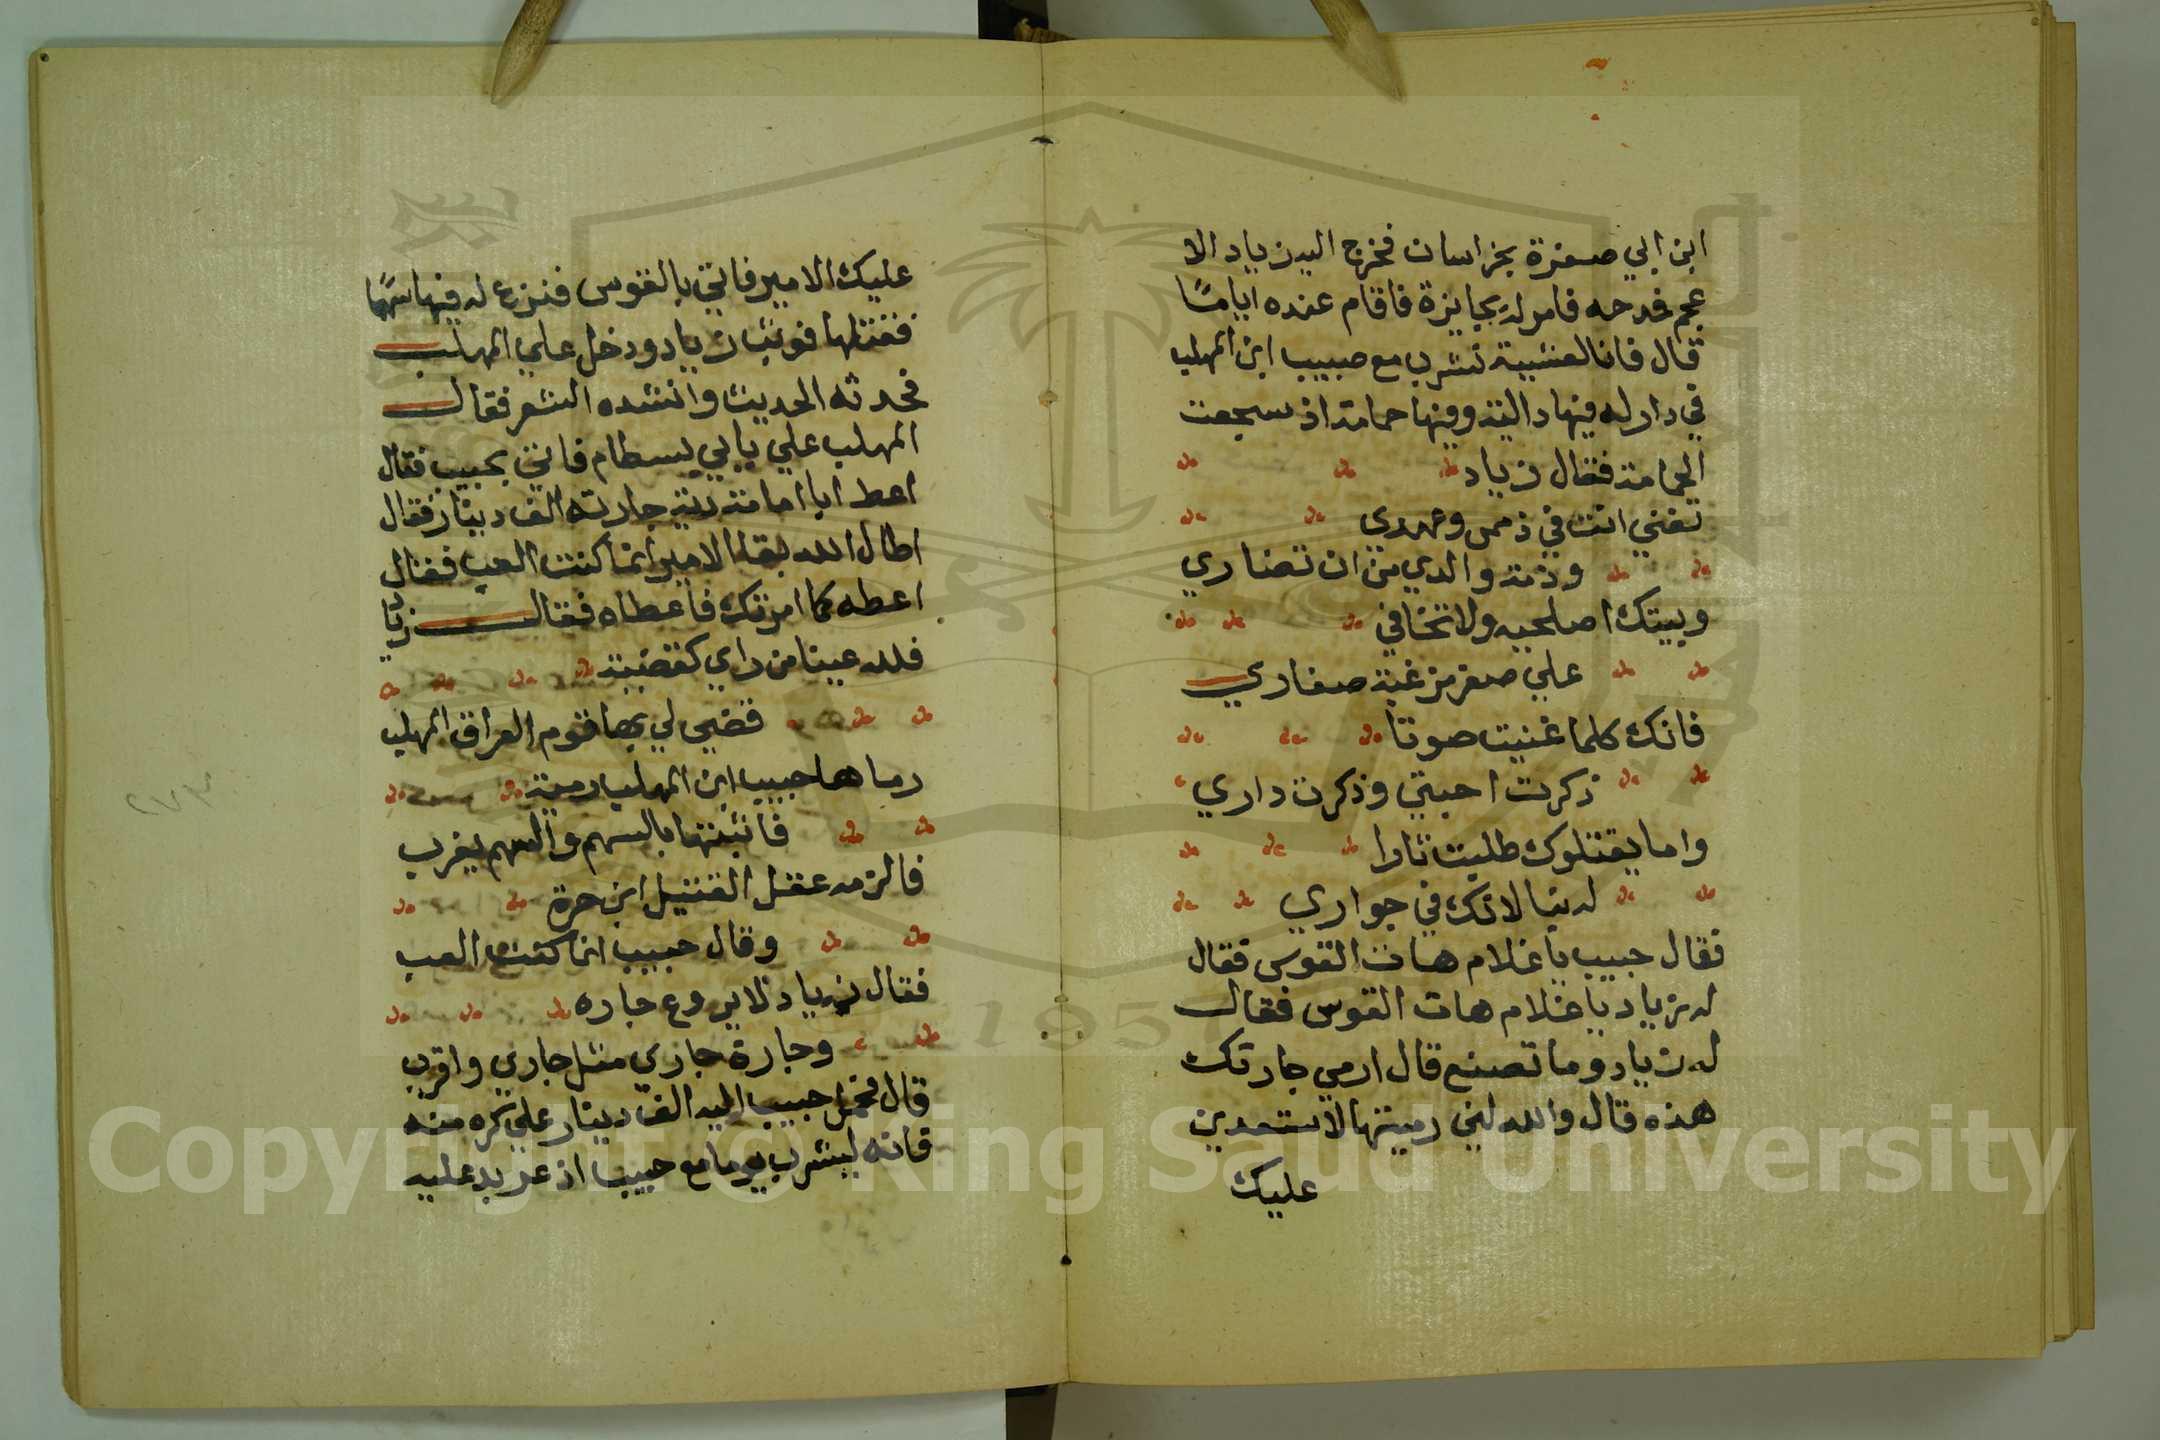 ابن ابي صفرة بخراسان فخرج اليه زياد الا
عجم فمدحه فامر له بجايزة فاقام عنده اياما
قال فانا لعشية نشرب مع حبيب ابن المهلب
في دار له فيها دالية وفيها حمامة اذ سجعت
الحمامة فقال زياد
تغني انت في ذممي وعهدي
وذمة والدي من ان تضاري
وبيتك اصلحيه ولا تخافي
علي صفر مزغبة صغاري
فانك كلما غنيت صوتا
ذكرت احبتي وذكرت داري
واما يقتلوك طلبت ثارا
له نبا لانك في جواري
فقال حبيب يا غلام هات القوس فقال
له زياد يا غلام هات القوس فقال
له زياد وما تصنع قال ارمي جارتك
هذه قال والله لين رميتها لاستعدين
عليك
عليك الامير فاتي بالقوس فنزع له فيها سهما
فقتلها فوثب زياد ودخل علي المهلب
فحدثه الحديث وانشده الشعر فقال
المهلب علي يابي بسطام فاتي بحبيب فقال
اعط ابا امامة دية جارته الف دينار فقال
اطال الله بقا الامير انما كنت العب فقال
اعطه كما امرتك فاعطاه فقال زياد
فلله عينا من راي كقضية
قضي لي بها قوم العراق المهلب
رماها حبيب ابن المهلب رمية
فاثبتها بالسهم والسهم يغرب
فالزمه عقل القتيل ابن حرة
وقال حبيب انما كنت العب
فقال زياد لا يروع جاره
وجارة جاري مثل جاري واقرب
قال فحمل حبيب اليه الف دينار علي كره منه
فانه ليشرب يوما مع حبيب اذ عربد عليه
٢٧٣
Copyright © King Saud University
1957